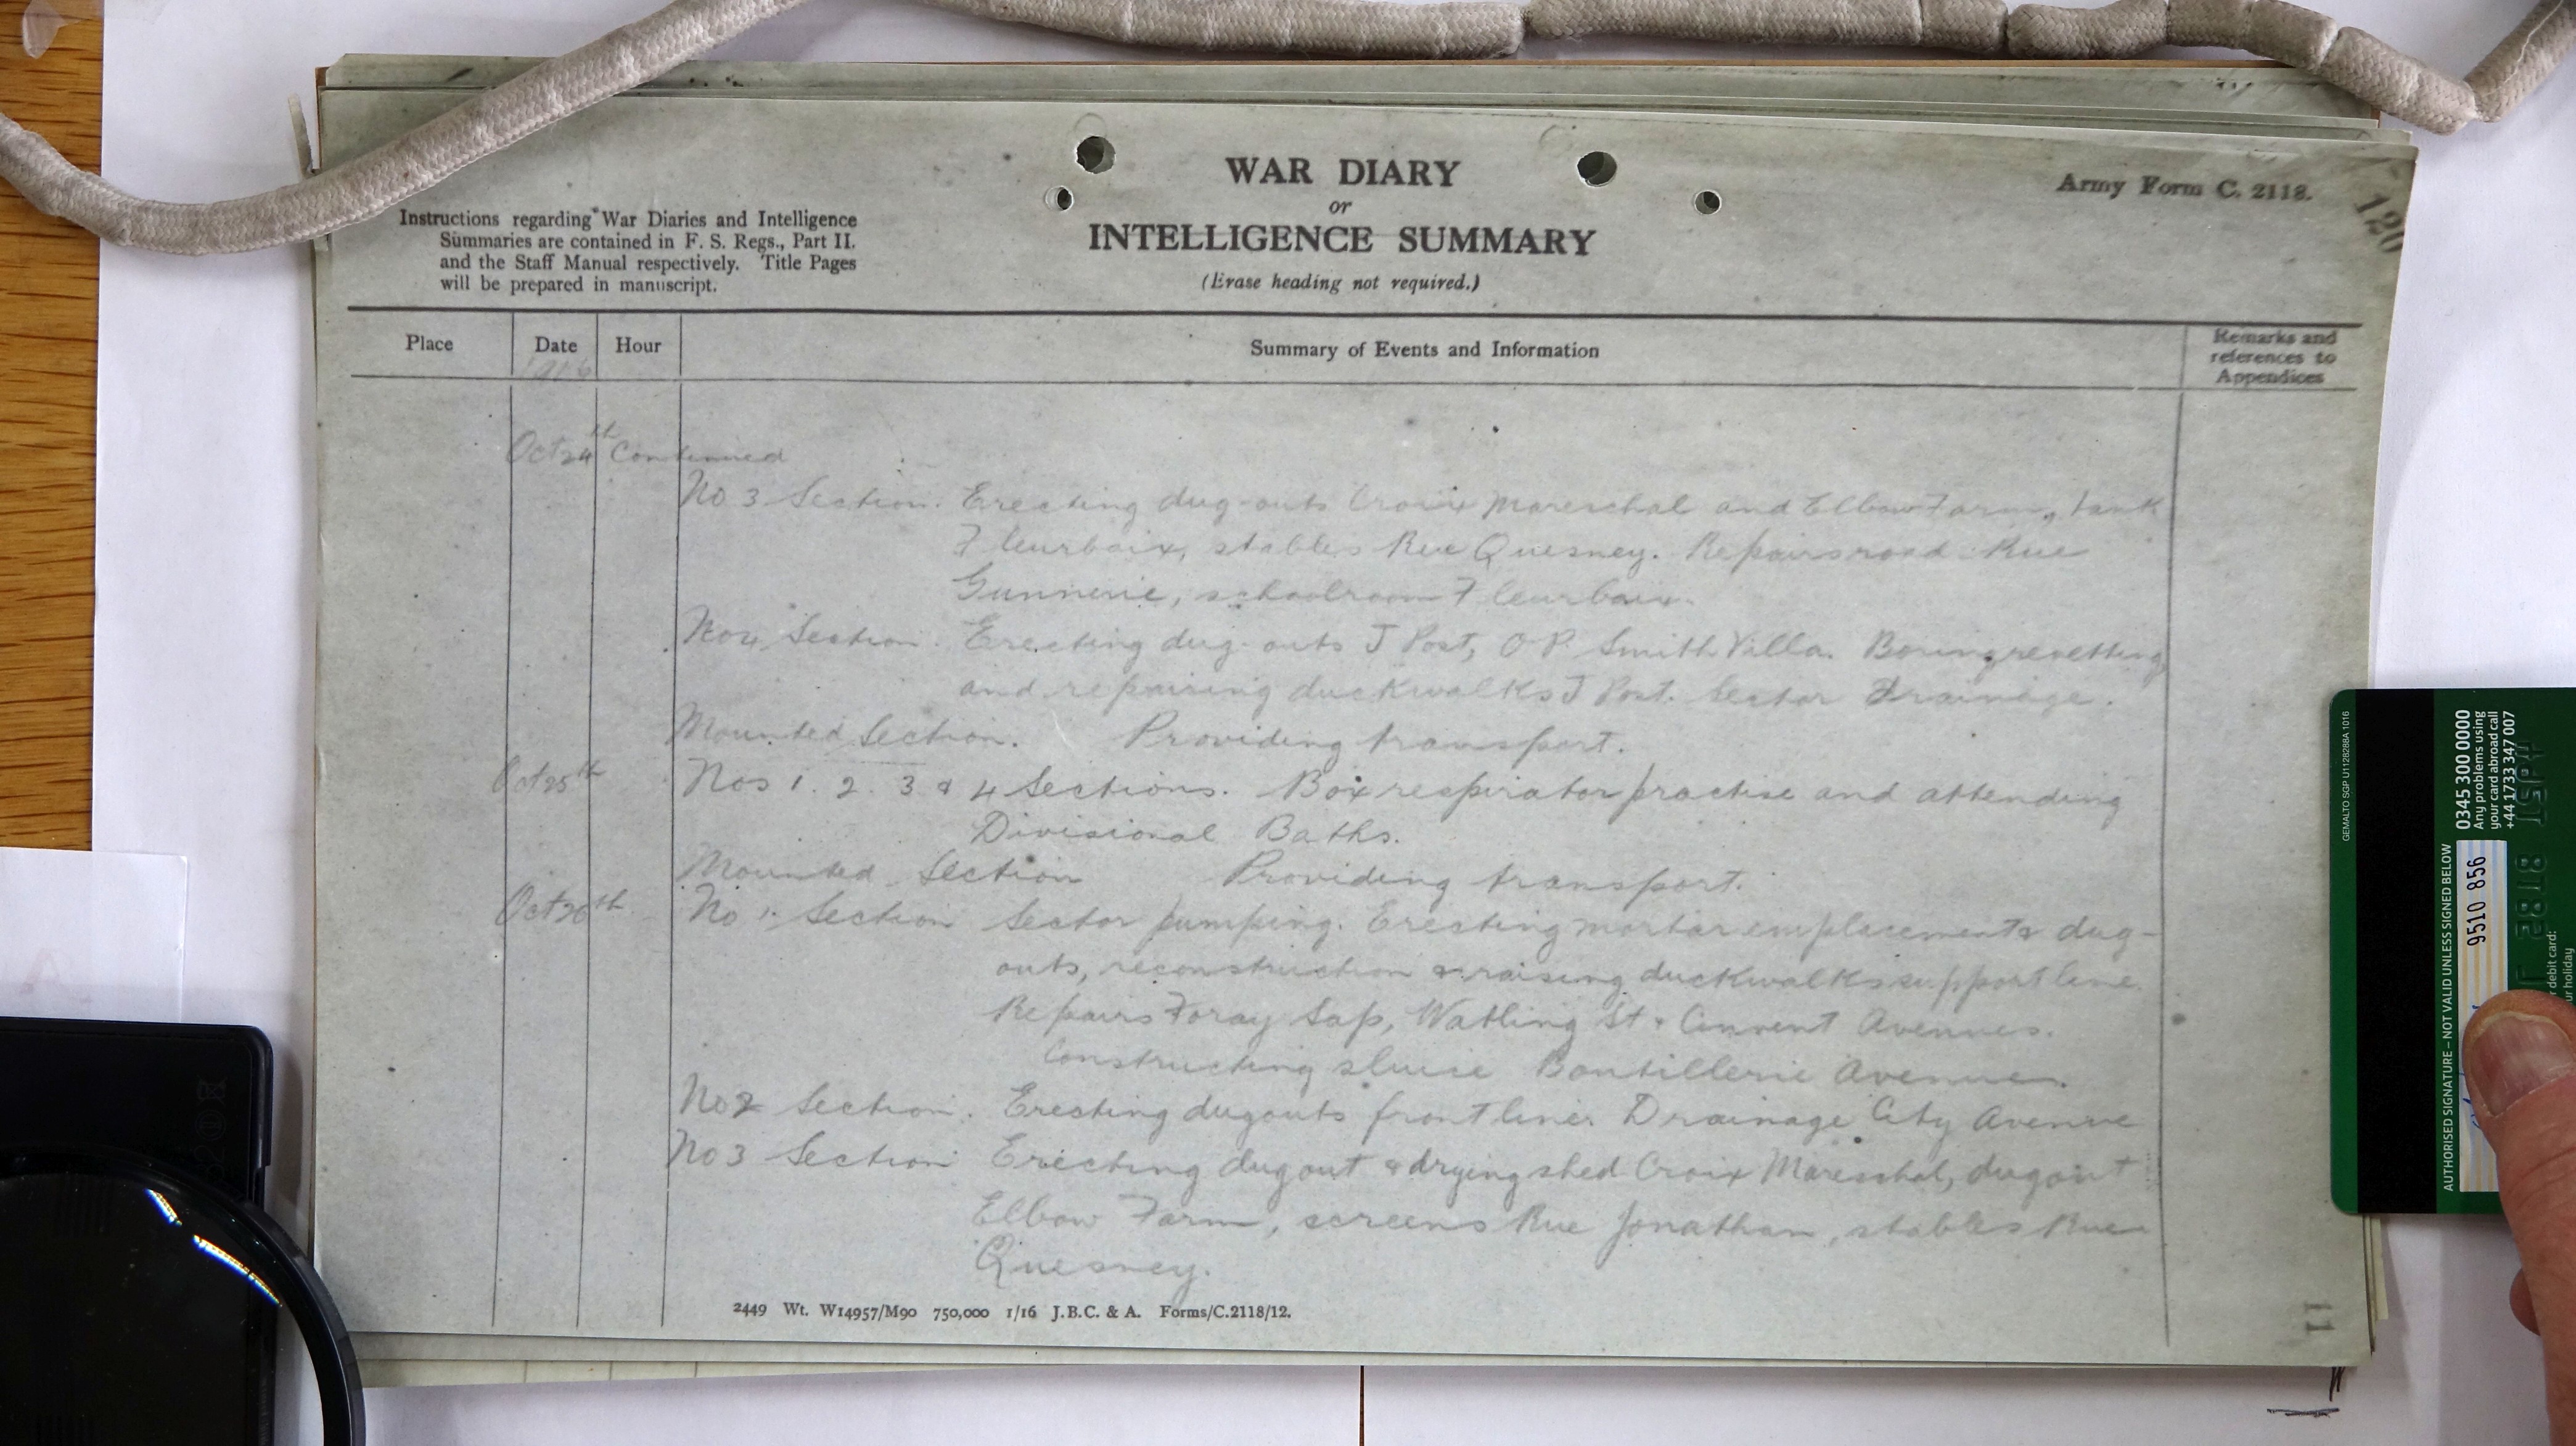 WAR DIARY
or
INTELLIGENCE SUMMARY
(Erase heading not required.)
Army Form C. 2118.
120
Instructions regarding War Diaries and Intelligence
Summaries are contained in F. S. Regs., Part II.
and the Staff Manual respectively. Title Pages
will be prepared in manuscript.
Place Date Hour Summary of Events and Information Remarks and
references to
Appendices
1916
Oct 24th Continued
No 3 Section. Erecting dug-outs Croix Mareschal and Elbow Farm, tank
Fleurbaix, stables Rue Quesney. Repairs road Rue
Gunnerie, schoolroom Fleurbaix.
No 4 Section. Erecting dug-outs J Post, O P Smith Villa. Boring revetting
and repairing duckwalks J Post. Sector Drainage.
Mounted Section. Providing transport.
Oct 25th Nos 1. 2. 3 & 4 Sections. Box respirator practise and attending
Divisional Baths.
Mounted Section Providing transport.
Oct 26th No 1. Section Sector pumping. Erecting mortar emplacements dug-
outs, reconstruction & raising duckwalks support line
Repairs Foray Sap, Watling St & Avenues.
Constructing sluice Boutillerie Avenue.
No 2 Section. Erecting dugouts front line. Drainage City Avenue
No 3 Section Erecting dugout & drying shed Croix Mareschal, dugout
Elbow Farm, screens Rue Jonathan, stables Rue
Quesney.
2449 Wt. W14957/M90 750,000 1/16 J.B.C. & A. Forms/C.2118/12.
11
GEMALTO SGP U1128288A 1016
0345 300 0000
Any problems using
your card abroad call
+44 1733 347 007
AUTHORISED SIGNATURE – NOT VALID UNLESS SIGNED BELOW
9510 856
debit card:
holiday